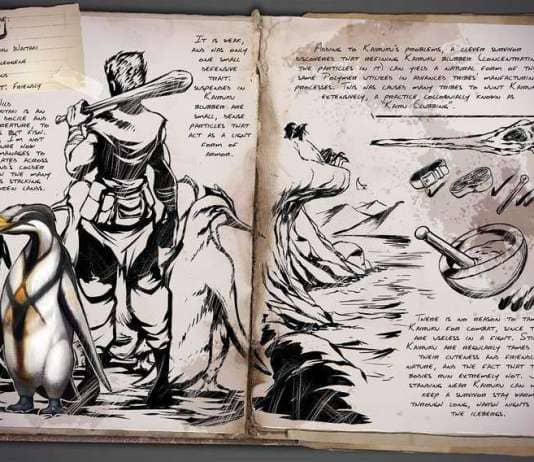 E:
WAITAN
EOGENE
NS
T: FRIENDLY
WILD
WAITAN IS AN
DOCILE AND
REATURE, TO
S BUT FISH.
, I'M NOT
URE HOW
MANAGES TO
ATED ACROSS
AND'S COLDER
N THE MANY
S STALKING
OZEN LANDS.
IT IS WEAK,
AND HAS ONLY
ONE SMALL
DEFENSIVE
TRAIT:
SUSPENDED IN
KAIRUKU
BLUBBER ARE
SMALL, DENSE
PARTICLES THAT
ACT AS A LIGHT
FORM OF
ARMOR.
ADDING TO KAIRUKU'S PROBLEMS, A CLEVER SURVIVOR
DISCOVERED THAT REFINING KAIRUKU BLUBBER (CONCENTRATING
THE PARTICLES IN IT) CAN YIELD A NATURAL FORM OF THE
SAME POLYMER UTILIZED IN ADVANCED TRIBES' MANUFACTURING
PROCESSES. THIS HAS CAUSED MANY TRIBES TO HUNT KAIRUKU
EXTENSIVELY, A PRACTICE COLLOQUIALLY KNOWN AS
"KAIRU CLUBBING".
THERE IS NO REASON TO TAME
KAIRUKU FOR COMBAT, SINCE T
ARE USELESS IN A FIGHT. STI
KAIRUKU ARE REGULARLY TAMED
THEIR CUTENESS AND FRIEND
NATURE, AND THE FACT THAT T
BODIES RUN EXTREMELY HOT.
STANDING NEAR KAIRUKU CAN
KEEP A SURVIVOR STAY WARM
THROUGH LONG, HARSH NIGHTS
THE ICEBERGS.